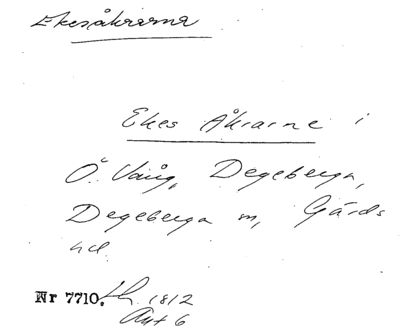 Ekesåkrarna
Ekes Åkrarne i
Ö. Vång, Degeberga,
Degeberga sn, Gärds
hd.
Nr 7710. Lh. 1812
Akt 6